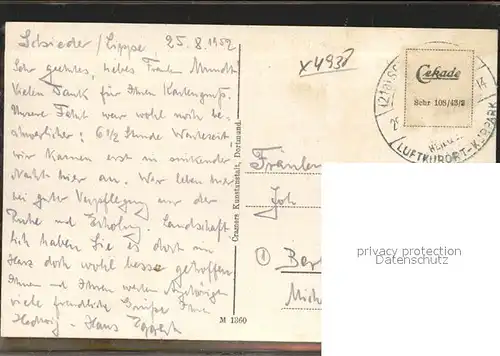 Schieder/Lippe, 25.8.1952
Sehr geehrtes, liebes Fräulein
Vielen Dank für Ihren Kartengruß.
Unsere Fahrt war wohl noch be-
schwerlicher: 6 1/2 Stunde Wartezeit
wir kamen erst in sinkender
Nacht hier an. Wir leben hier
bei guter Verpflegung nur der
Ruhe und Erholung. Landschaft-
lich haben Sie es doch im
Harz doch wohl besser getroffen
Ihnen und Ihren werten Angehörigen
viele freundliche Grüße Ihre
Hedwig - Hans Eggert
x4930
Cramers Kunstanstalt, Dortmund.
M 1360
Cekade
Schr 105/43/2
(21a) SC
14
LUFTKURORT - KURPARK
Fräulein
Joh
① Ber
Mich
privacy protection
Datenschutz